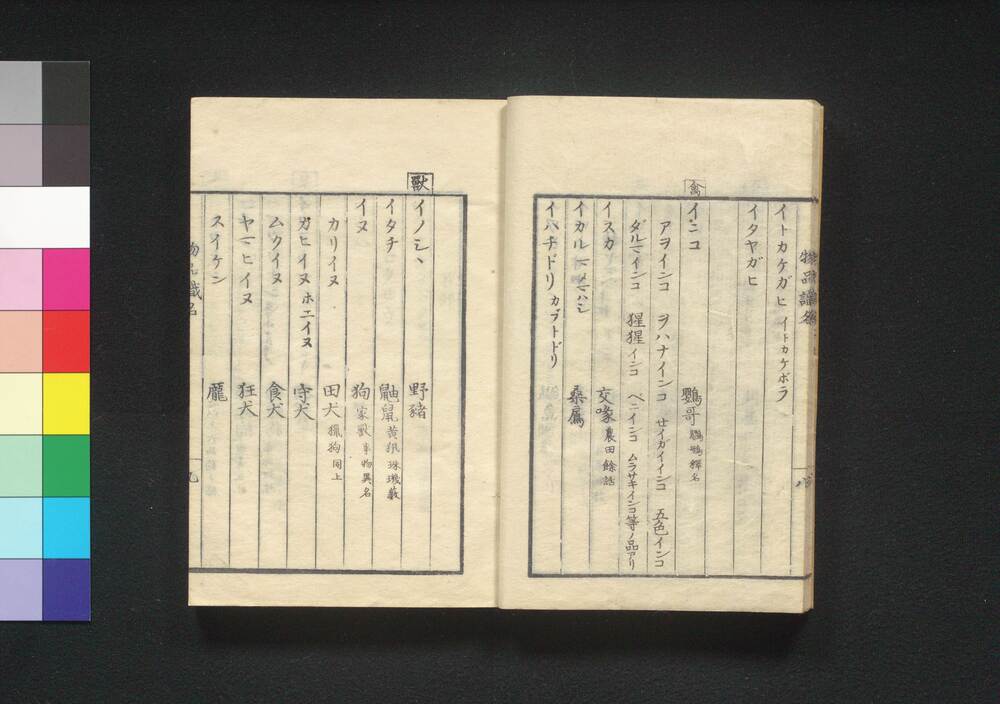 イトカケガヒ イトカケボラ
イタヤガヒ
禽
インコ 鸚哥
アヲインコ ヲハナインコ せイガイインコ 五色インコ
ダルマインコ 猩猩インコ ベニインコ ムラサキインコ等ノ品アリ
イスカ 交喙 農田餘話
イカル マメマハシ 桑鳸
イハチドリ カブトドリ
八
獸
イノシヽ 野豬
イタチ 鼬鼠
イヌ 狗 家獸 事物異名
カリイヌ 田犬 獵狗 同上
カヒイヌ ホエイヌ 守犬
ムクイヌ 食犬
ヤマヒイヌ 狂犬
スイケン
物品識名
九